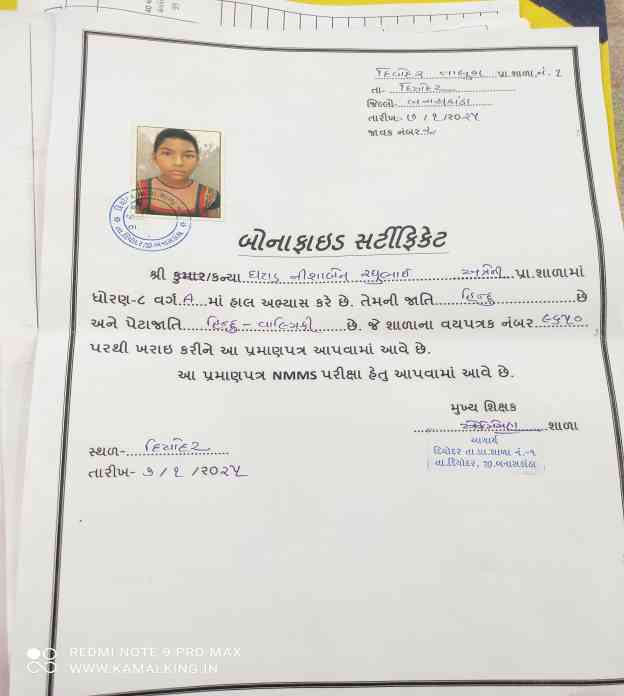 દિયોદર તાલુકા પ્રા.શાળા,નં. 1
તા- દિયોદર
જિલ્લો- બનાસકાંઠા
તારીખ:- ૭ / ૧ /૨૦૨૫
જાવક નંબર:-
બોનાફાઇડ સર્ટીફિકેટ
શ્રી કુમાર/કન્યા નીશાબેન અત્રેની પ્રા.શાળામાં
ધોરણ-૮ વર્ગ A માં હાલ અભ્યાસ કરે છે. તેમની જાતિ હિન્દુ છે
અને પેટાજાતિ હિન્દુ - વાલ્મિકી છે. જે શાળાના વયપત્રક નંબર ૯૬૫૦
પરથી ખરાઇ કરીને આ પ્રમાણપત્ર આપવામાં આવે છે.
આ પ્રમાણપત્ર NMMS પરીક્ષા હેતુ આપવામાં આવે છે.
મુખ્ય શિક્ષક
શાળા
આચાર્ય
દિયોદર તા.પ્રા.શાળા નં.-૧
તા.દિયોદર, જી.બનાસકાંઠા
સ્થળ- દિયોદર
તારીખ- ૭ / ૧ /૨૦૨૫
REDMI NOTE 9 PRO MAX
WWW.KAMALKING.IN